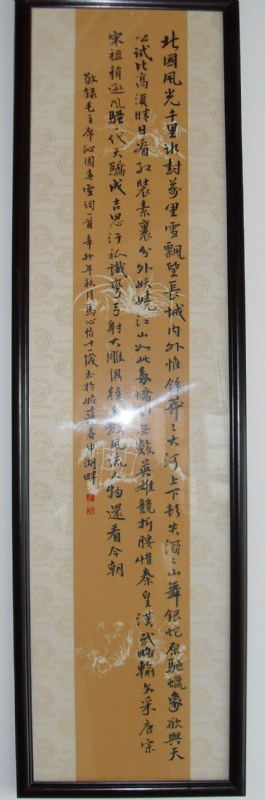 北國風光千里冰封萬里雪飄望長城內外惟餘莽々大河上下頓失滔々山舞銀蛇原馳蠟象欲與天
公試比高須晴日看紅裝素裹分外妖嬈江山如此多嬌引無數英雄競折腰惜秦皇漢武略輸文采唐宗
宋祖稍遜風騷一代天驕成吉思汗祗識彎弓射大雕俱往矣數風流人物還看今朝
敬錄毛主席沁園春雪詞一首辛卯年秋月馬心怡十一歲書於姑蘇春申湖畔